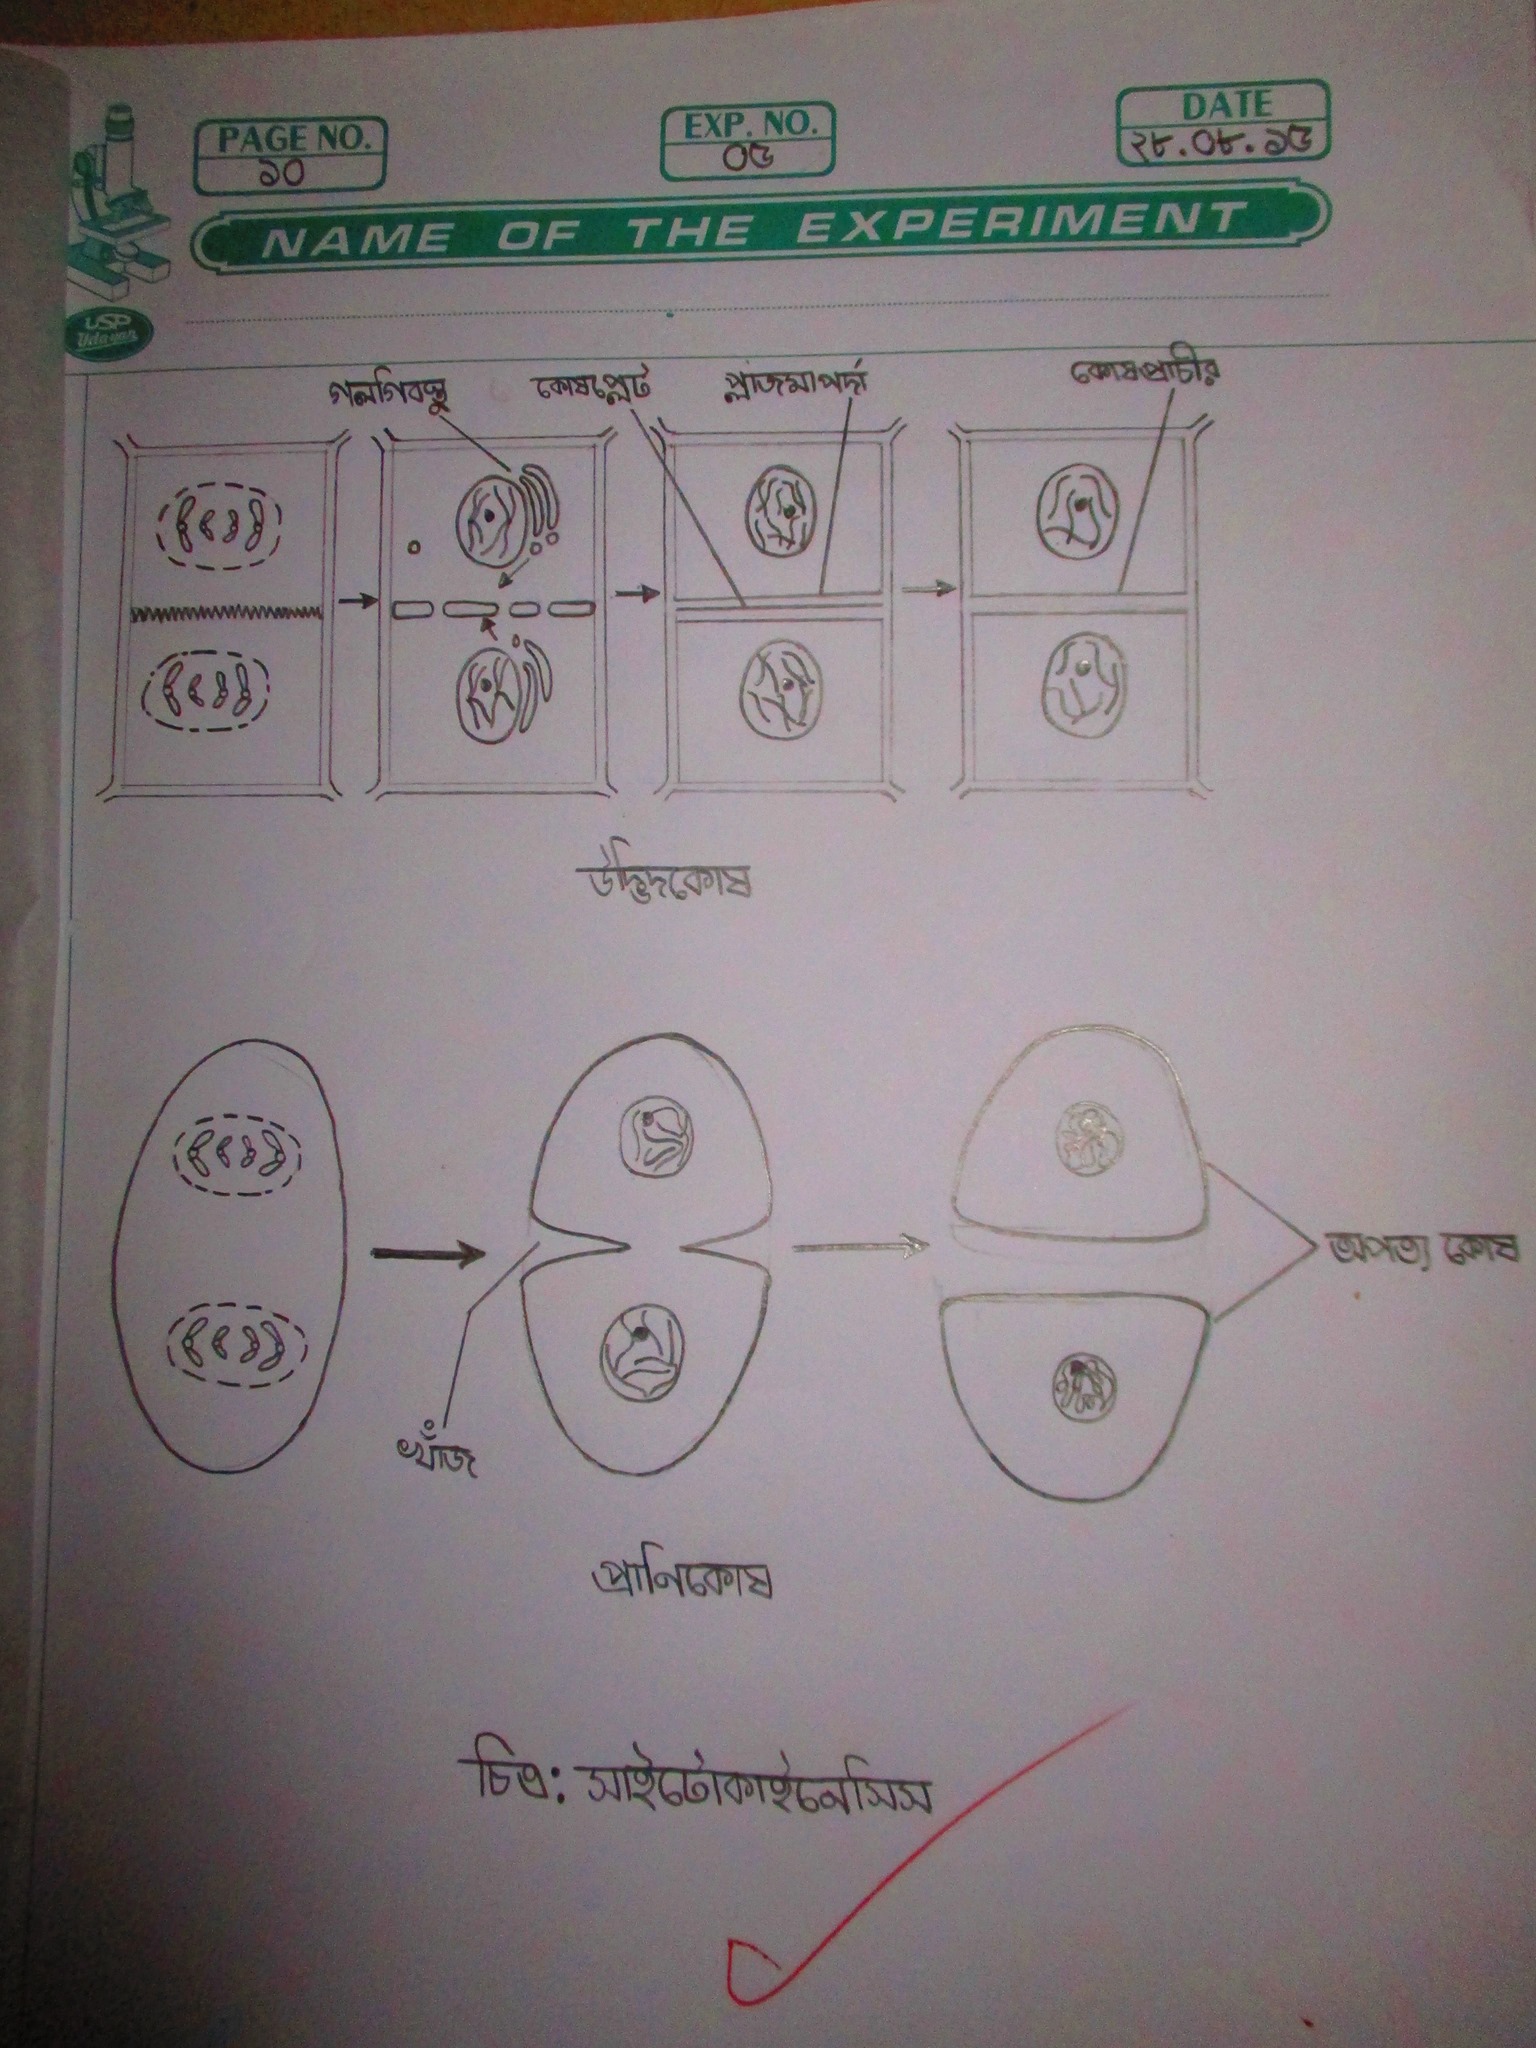 PAGE NO.
১০
EXP. NO.
০৫
DATE
২৮.০৮.১৫
NAME OF THE EXPERIMENT
USP
Udayan
গলগিবস্তু কোষপ্লেট প্লাজমাপর্দা কোষপ্রাচীর
উদ্ভিদকোষ
অপত্য কোষ
খাঁজ
প্রানিকোষ
চিত্র: সাইটোকাইনেসিস